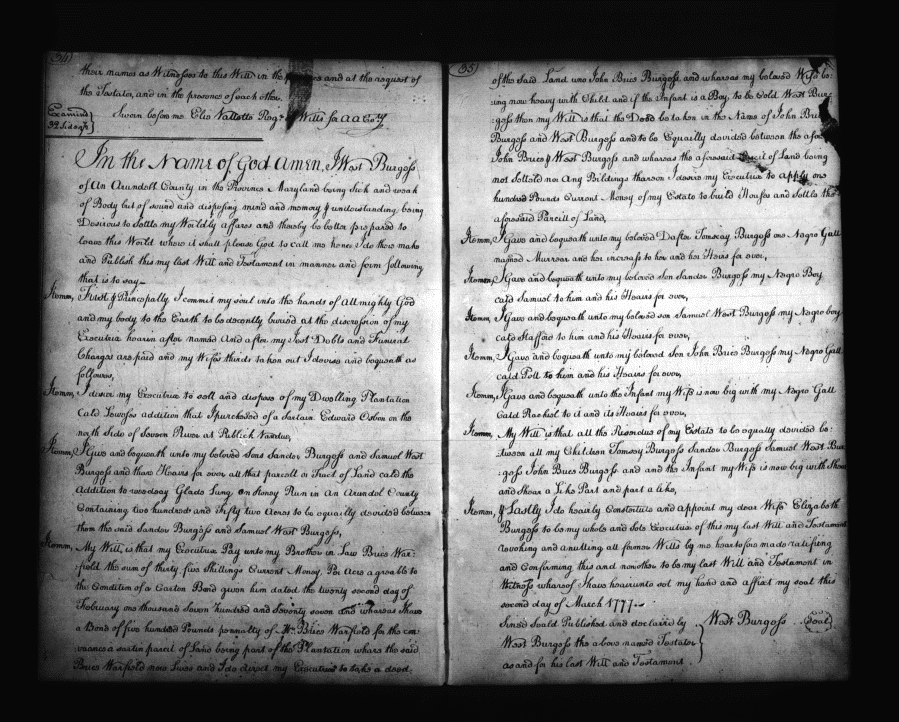 34
their names as Witnesses to this Will in the and at the request of
the Testator, and in the presence of each other.
Examined
Sworn before me Elie Vallette Regr. Wills for AA Coty
In the Name of God Amen, I West Burgess
of An Arundell County in the Province Maryland being Sick and weak
of Body but of sound and disposing mind and memory & understanding being
Desirous to Settle my Worldly affares and thereby be better prepared to
leave this World when it shall please God to Call me hence I do then make
and Publish this my last Will and Testament in manner and form following
that is to say
Itemm, First & Principally I commit my soul into the hands of Allmighty God
and my body to the Earth to be decently buried at the discression of my
Executrix hearin after named And after my Just Debts and Funeral
Charges are paid and my Wifes thirds taken out I devise and bequeath as
followes,
Itemm, I desier my Executrix to sell and dispose of my Dwelling Plantation
Cald Sewefes addition that I purchased of a Sartain Edward Osbon on the
north Side of Severn River at Publick Vandue,
Itemm, I Give and bequeath unto my beloved Sons Sander Burgess and Samuel West
Burgess and thare Heairs for ever all that parcell or Tract of Land cald the
Addition to Glads Lying on Stoney Run in An Arundol County
Containing two hundred and thifty two Acres to be equally devided between
them the said Sander Burgess and Samuel West Burgess,
Itemm, My Will is that my Executrix Pay unto my Brother in Law Brice War=
field the sum of thirty five Shillings Current Money Per Acre agreable to
the Condition of a Carton Bond given him dated the twenty second day of
February one thousand Seven hundred and Seventy seven and whereas I have
a Bond of five hundred Pounds pennalty of Mr. Brices Warfield for the con=
veance a sarten parcel of Land being part of the Plantation whare the said
Brice Warfield now Lives and I do direct my Executrix to take a deed
35
of the Said Land uno John Brice Burgess, and whareas my beloved Wife be=
ing now heavy with Child and if the Infant is a Boy, to be Cold West Bur=
gess then my Will is that the Deed be taken in the Name of John Brice
Burgess and West Burgess and to be Equally devided between the afore
John Brice & West Burgess and whareas the aforesaid Parcel of Land being
not settled nor Any Bildings thareon I desire my Executrix to apply one
hundred Pounds Current Money of my Estate to build Houses and Settle the
aforesaid Parcill of Land,
Itemm, I Give and bequeath unto my beloved Dafter Tomsey Burgess one Negro Gall
named Murrear and her increase to her and her Heirs for ever,
Itemm, I Gave and bequeath unto my beloved son Sander Burgess my Negro Boy
cald Samuel to him and his Heairs for ever,
Itemm, I Gave and bequeath unto my beloved son Samuel West Burgess my Negro boy
cald Stafford to him and his Heairs for ever,
Itemm, I Gave and bequeath unto my beloved Son John Brice Burgess my Negro Gall
cald Poll to him and his Heairs for ever,
Itemm, I Gave and bequeath unto the Infant my Wife is now big with my Negro Gall
Cald Rachel to it and its Heairs for ever,
Itemm, My Will is that all the Resendue of my Estate to be equally devided be=
tween all my Children Tomsey Burgess Sander Burgess Samuel West Bur
=gess John Brice Burgess and and the Infant my Wife is now big with Share
and Shear a Like Part and part a like,
Itemm, & Lastly I do hearly Constertute and appoint my dear Wife Elizabeth
Burgess to be my whole and Sole Executrix of this my last Will and Testament
revoking and anulling all former Wills by me heartofore made ratifieing
and Confirming this and no nother to be my last Will and Testament in
Witness whareof I have heareunto set my hand and affixt my seal this
second day of March 1777.
Sined Seald Published and declaired by
West Burgess the above named Testator
as and for his last Will and Testament
West Burgess Seal